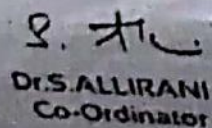 Dr.S.ALLIRANI
Co-Ordinator